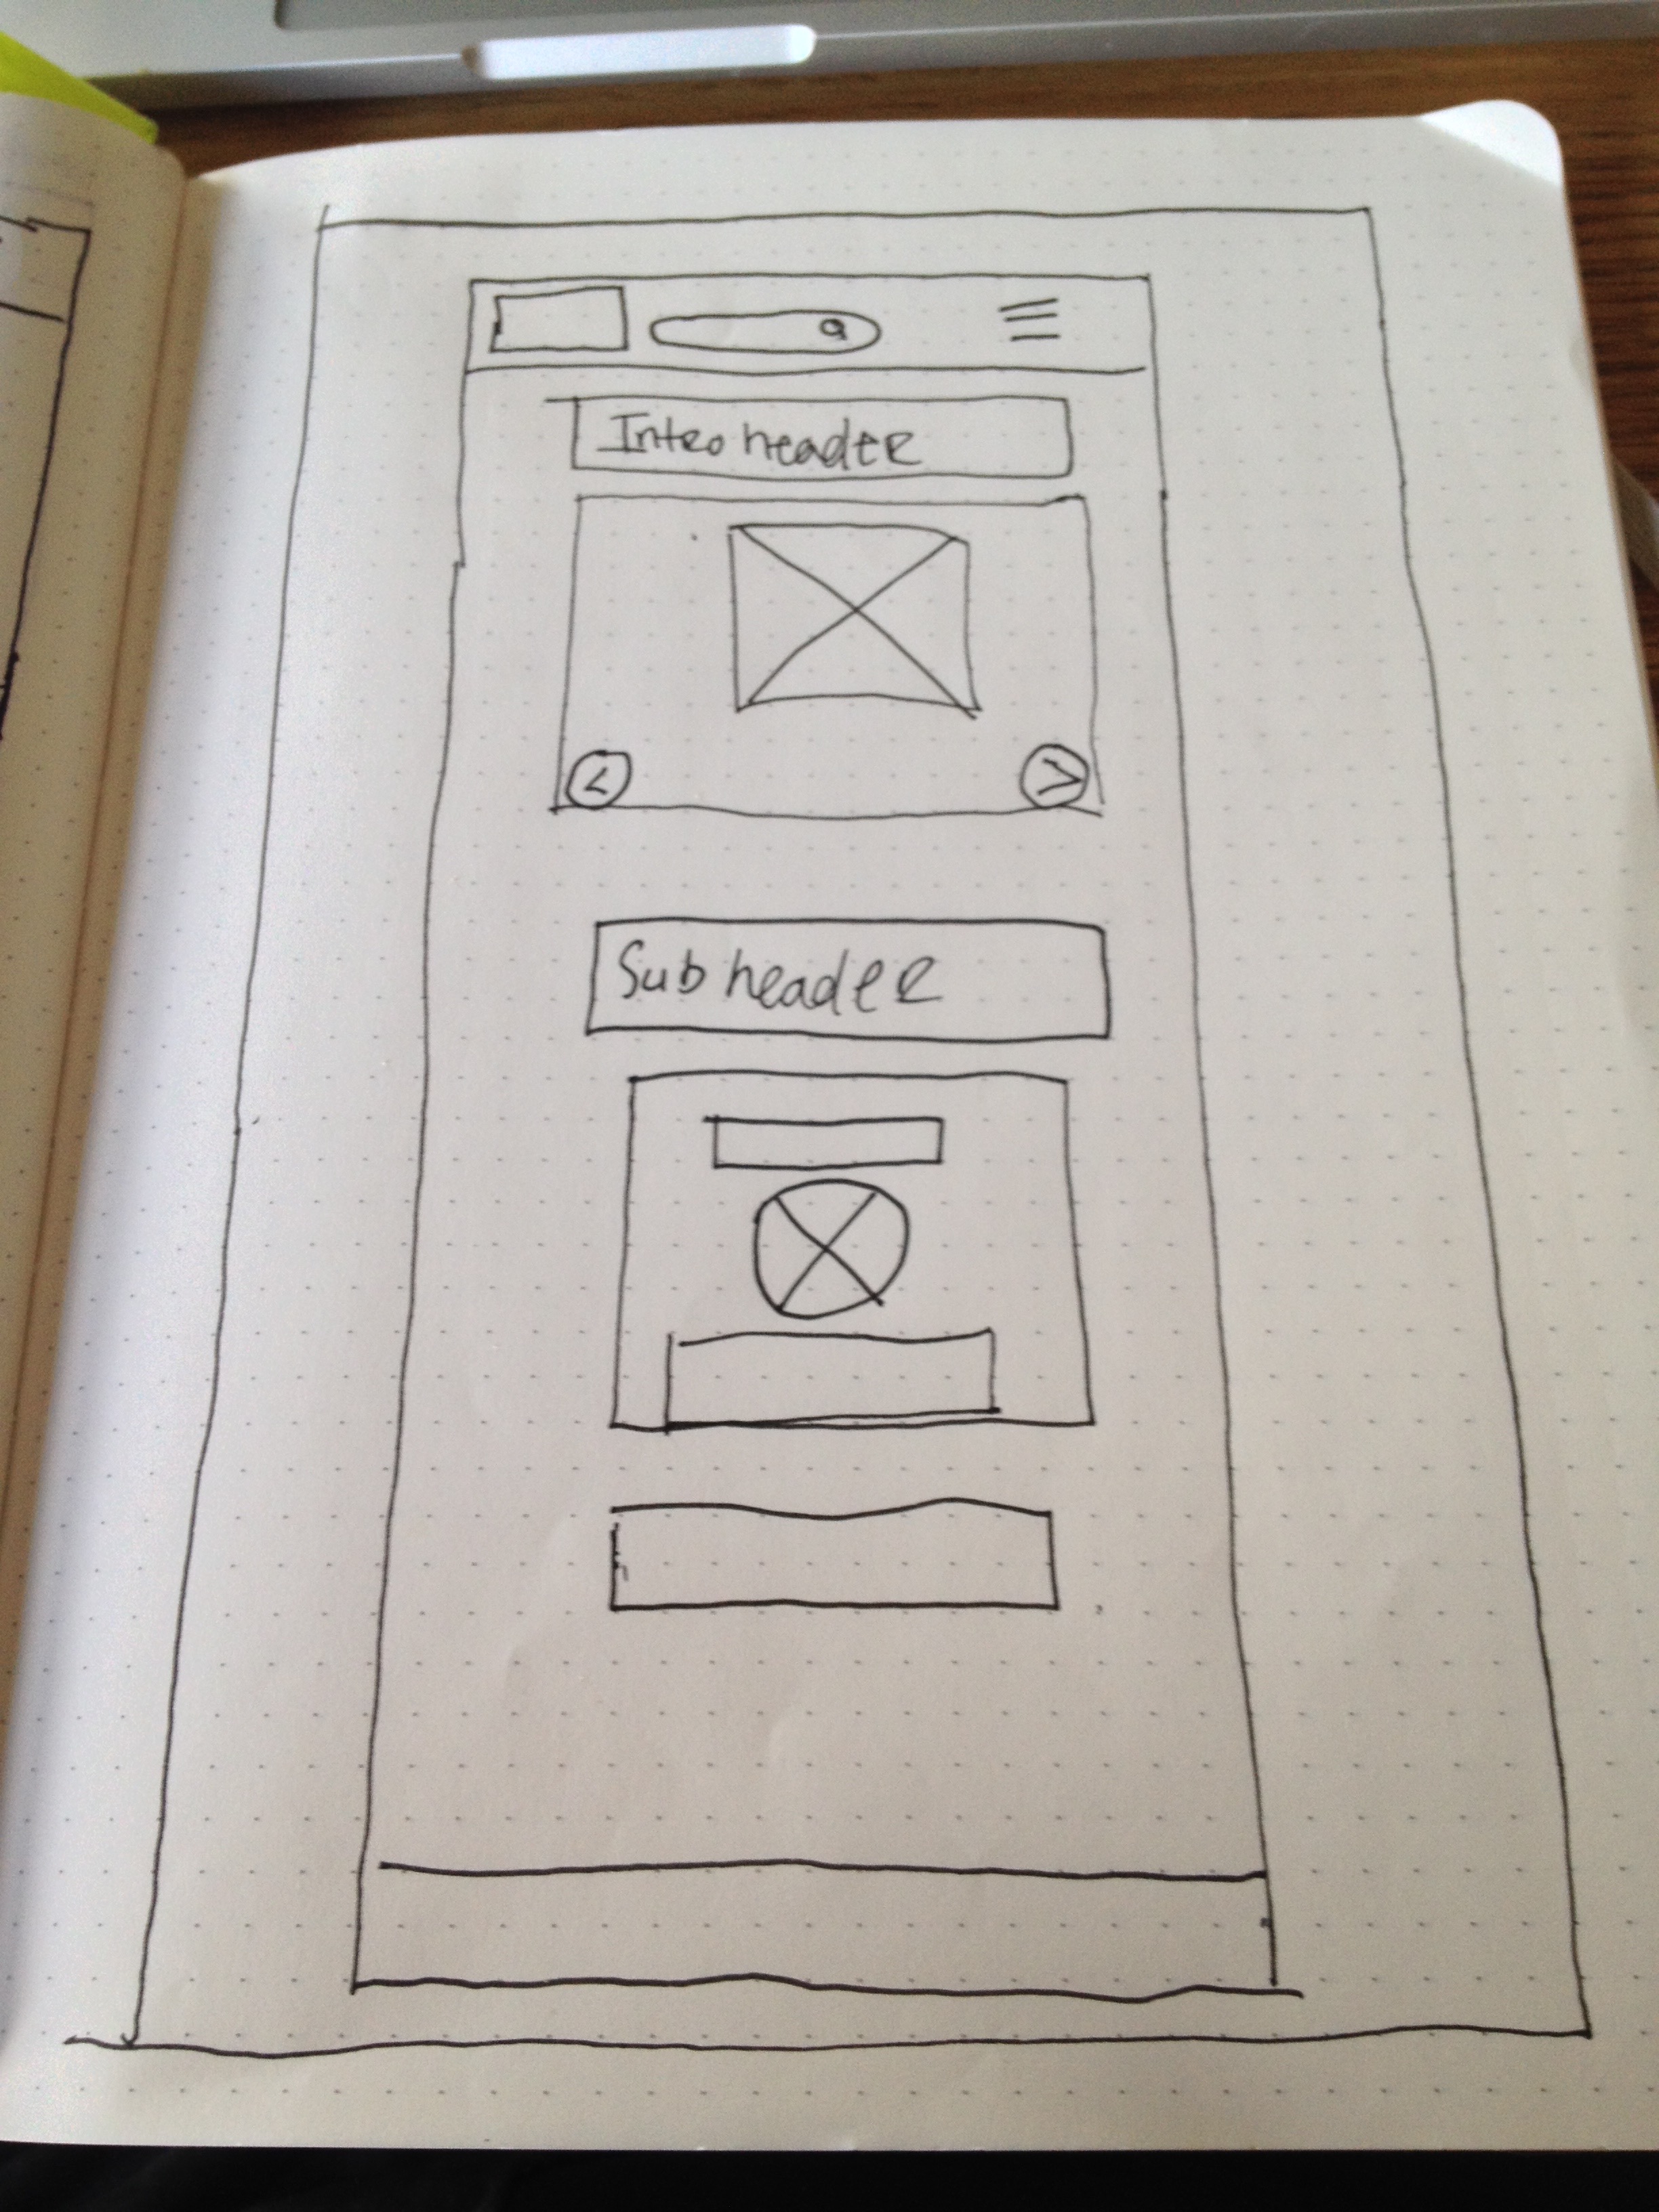 Intro header
<
>
Sub header